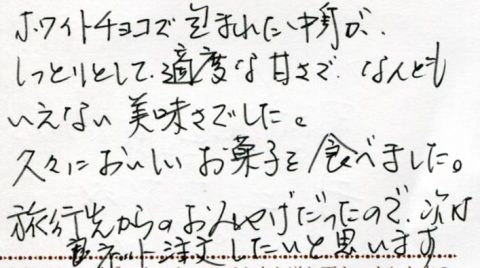 ホワイトチョコで包まれた中身が、
しっとりとして、適度な甘さで、なんとも
いえない美味さでした。
久々においしいお菓子を食べました。
旅行先からのおみやげだったので、次は
ネット注文したいと思います